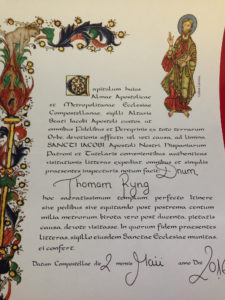 Capitulum huius
Almae Apostolicae
et Metropolitanae Ecclesiae
Compostellanae, sigilli Altaris
Beati Iacobi Apostoli custos, ut
omnibus Fidelibus et Peregrinis ex toto terrarum
Orbe, devotionis affectu vel voti causa, ad limina
SANCTI IACOBI, Apostoli Nostri, Hispaniarum
Patroni et Tutelaris convenientibus, authenticas
visitationis litteras expediat, omnibus et singulis
praesentes inspecturis, notum facit: Dnum
Thomam Kyng
hoc sacratissimum templum, perfecto Itinere
sive pedibus sive equitando post postrema centum
milia metrorum, birota vero post ducenta, pietatis
causa, devote visitasse. In quorum fidem praesentes
litteras, sigillo eiusdem Sanctae Ecclesiae munitas,
ei confert.
Datum Compostellae die 2 mensis Maii anno Dni 2016